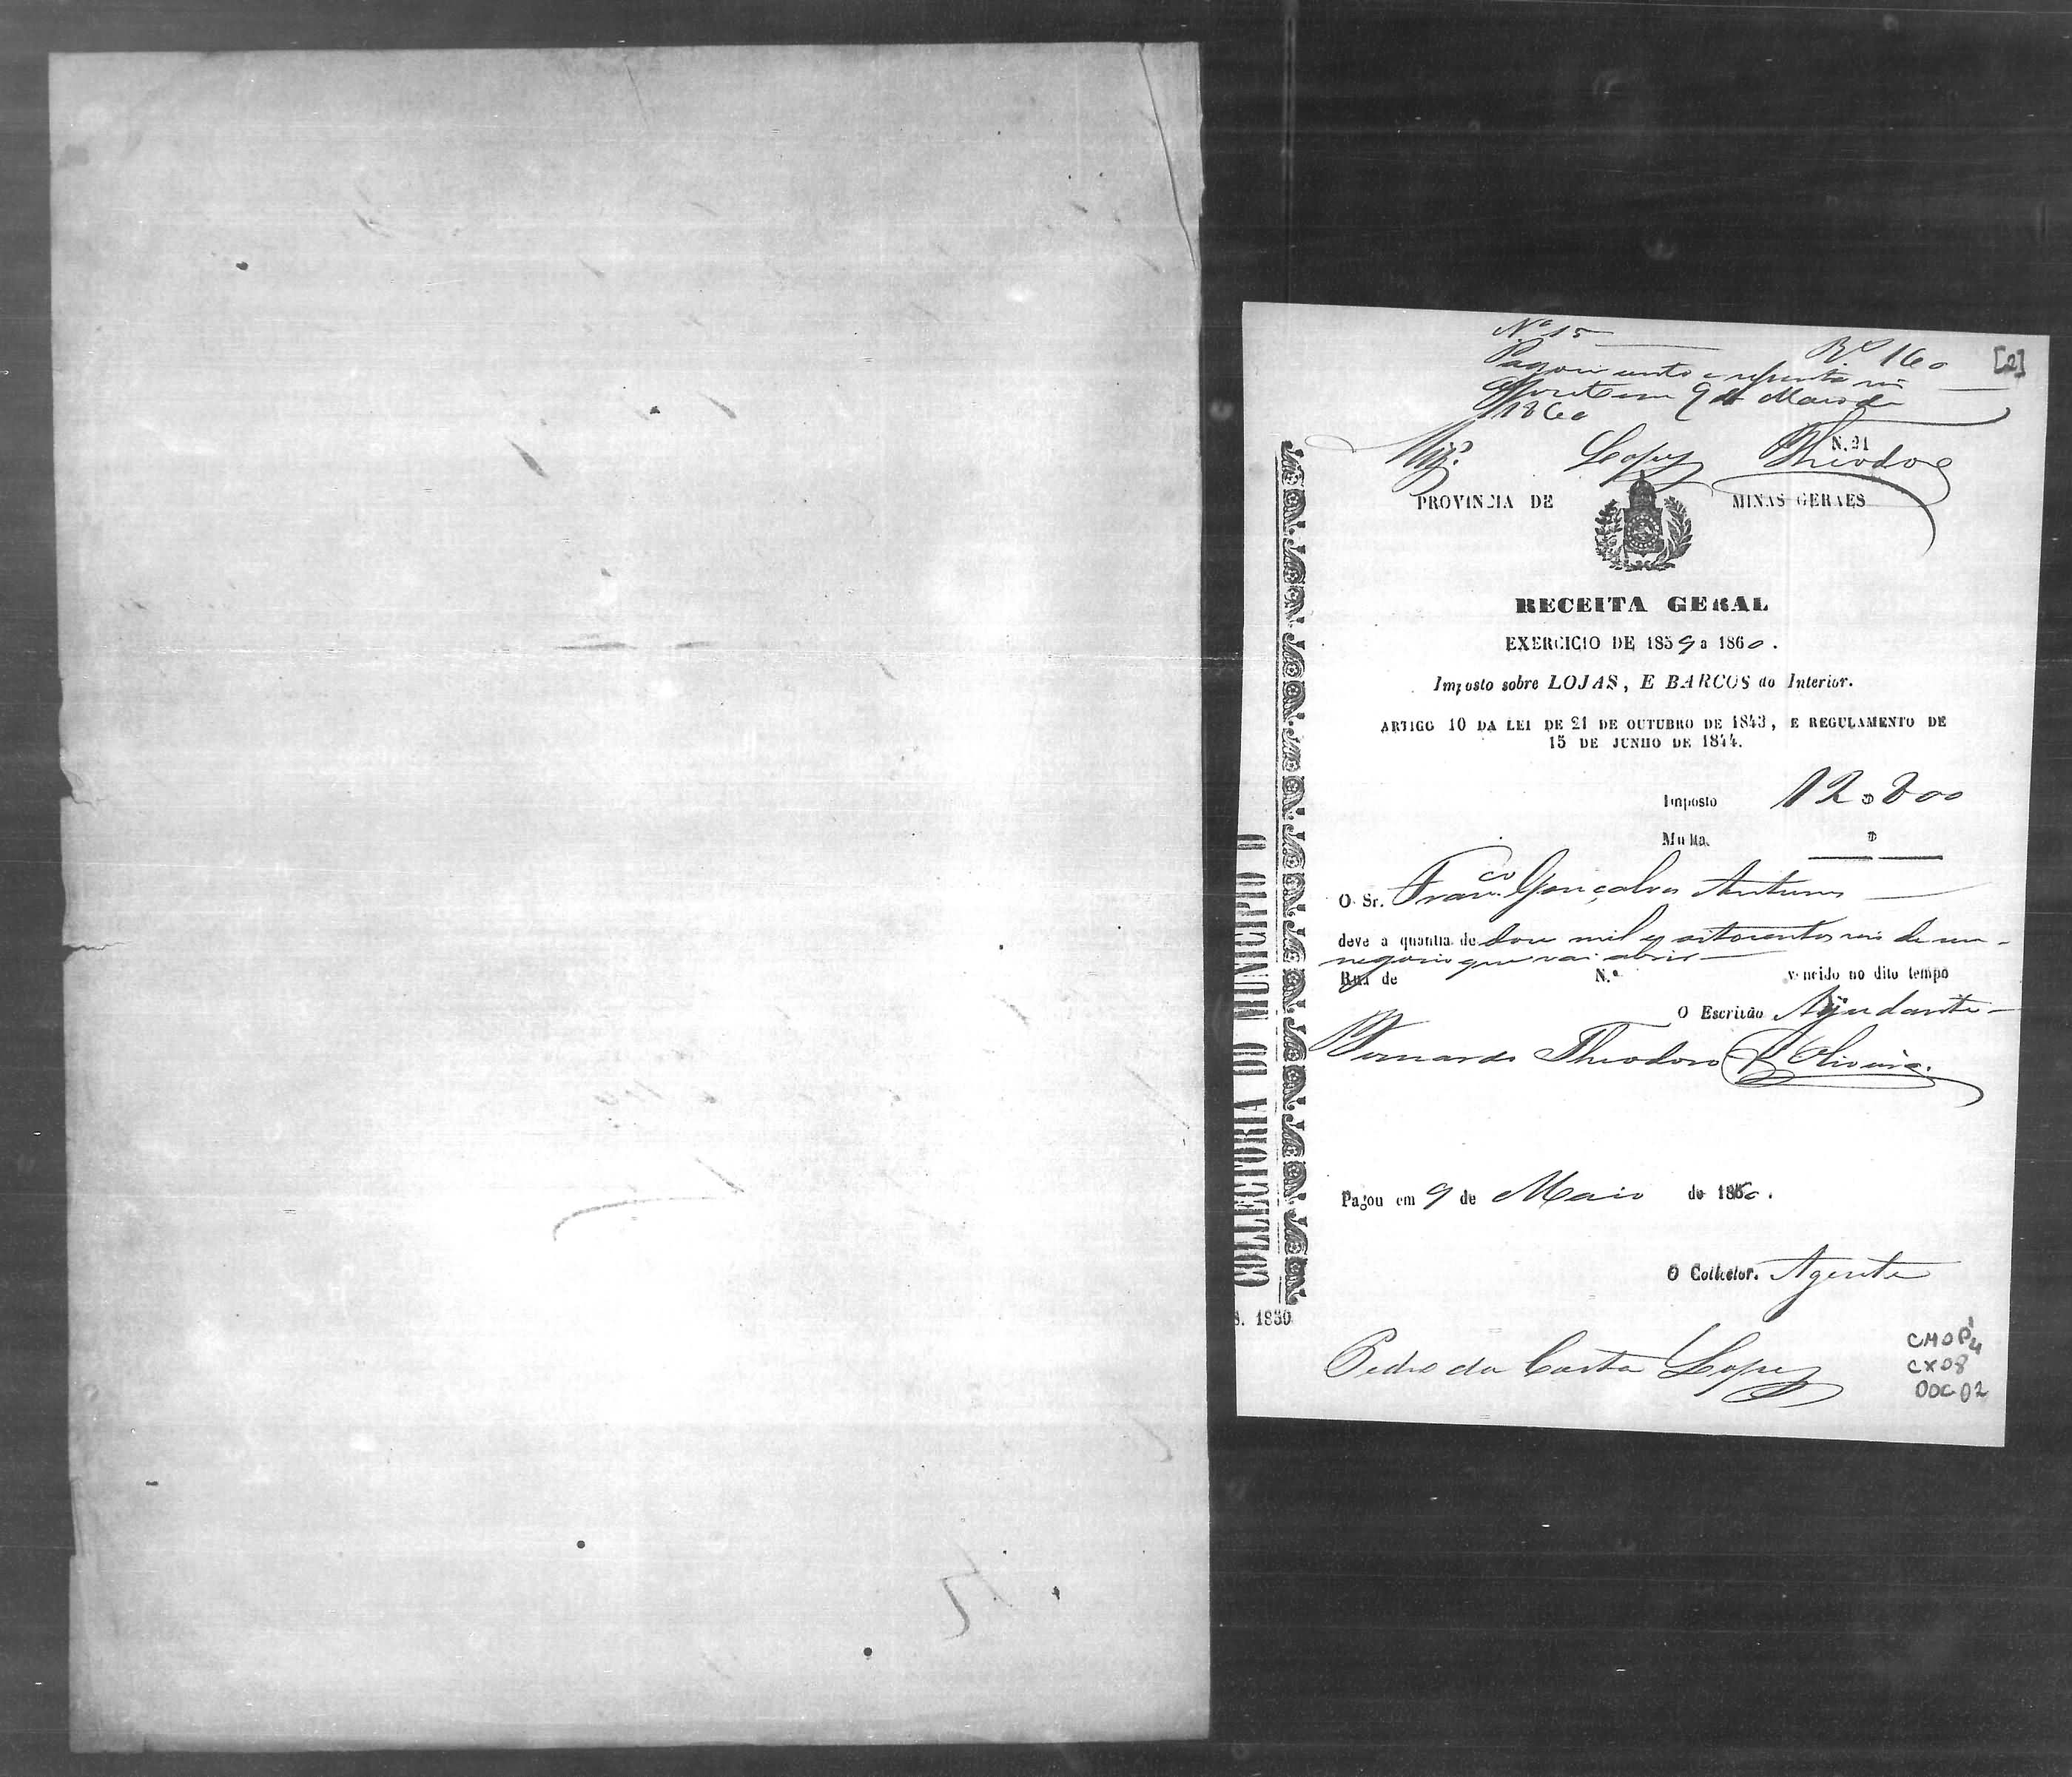 Nº 15 Rs 160 [2]
Pagou cento e sessenta reis
9 de Maio de
1860
N. 21
Lopes Theodoro
PROVINCIA DE MINAS GERAES
RECEITA GERAL
EXERCICIO DE 1859 a 1860.
Imposto sobre LOJAS, E BARCOS do Interior.
ARTIGO 10 DA LEI DE 21 DE OUTUBRO DE 1843, E REGULAMENTO DE
15 DE JUNHO DE 1844.
Imposto 12$800
Multa. $
O Sr. Franco. Gonçalves Antunes
deve a quantia de doze mil e oitocentos reis de um
negocio que vai abrir
Rua de N.º vencido no dito tempo
O Escrivão Ajudante
Bernardo Theodoro d'Oliveira.
Pagou em 9 de Maio de 1860.
O Collector. Agente
Pedro da Costa Lopes
COLLECTORIA DO MUNICIPIO D
S. 1830
CMOP
CX08
DOC02